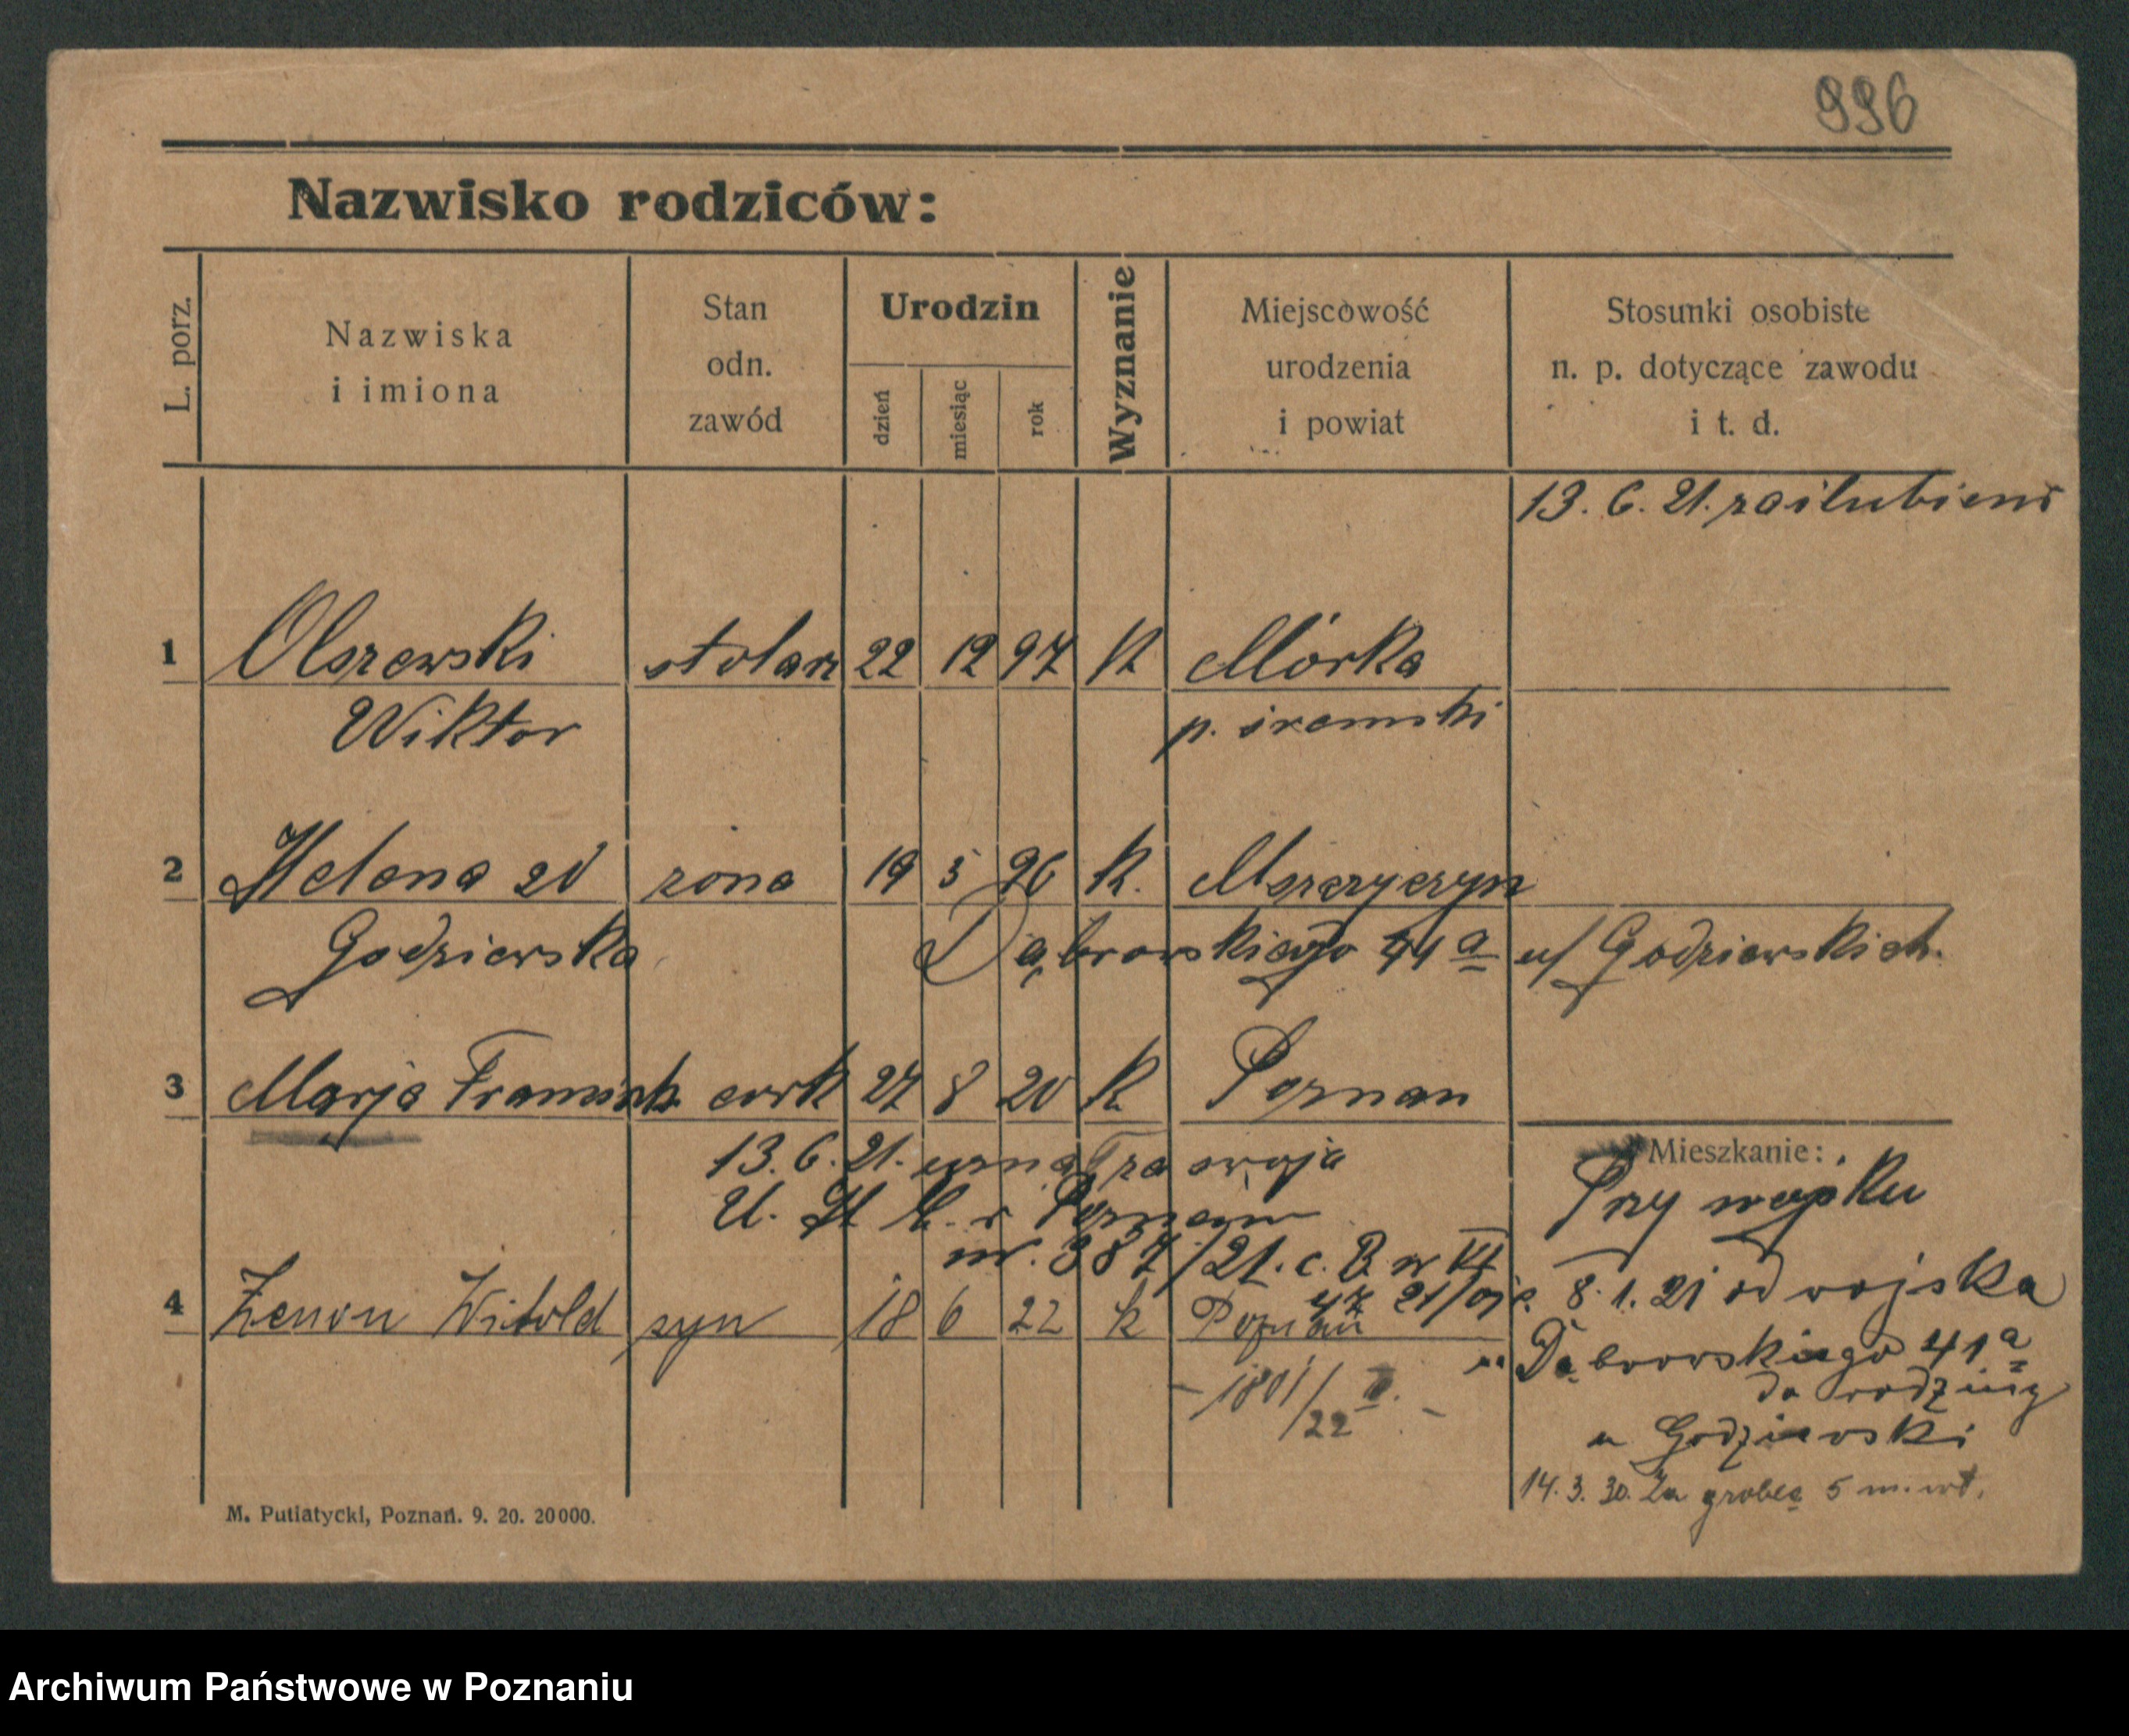 996
Nazwisko rodziców:
L. porz.
Nazwiska
i imiona
Stan
odn.
zawód
Urodzin
dzień
miesiąc
rok
Wyznanie
Miejscowość
urodzenia
i powiat
Stosunki osobiste
n. p. dotyczące zawodu
i t. d.
13. 6. 21. zaślubieni
1 Olszewski stolarz 22 12 97 K Mórka
Wiktor p. śremski
2 Helena zd żona 19 5 96 K.
Godziewska Dąbrowskiego 41a u/ Godziewskich.
3 Marja cork 27 8 20 K Poznan
13. 6. 21. uznał za swoją
Mieszkanie:
U. St. C. Poznaniu
Przy wąpku
nr. 387/21. c. B. w VI
4 Zenon Witold syn 18 6 22 k Poznań
8. 1. 21 od wojska
Dąbrowskiego 41a
- 1801/22 II. -
do rodziny
u Godziewski
14. 3. 30. Za groblą 5 m. wł.
M. Putiatycki, Poznań. 9. 20. 20000.
Archiwum Państwowe w Poznaniu